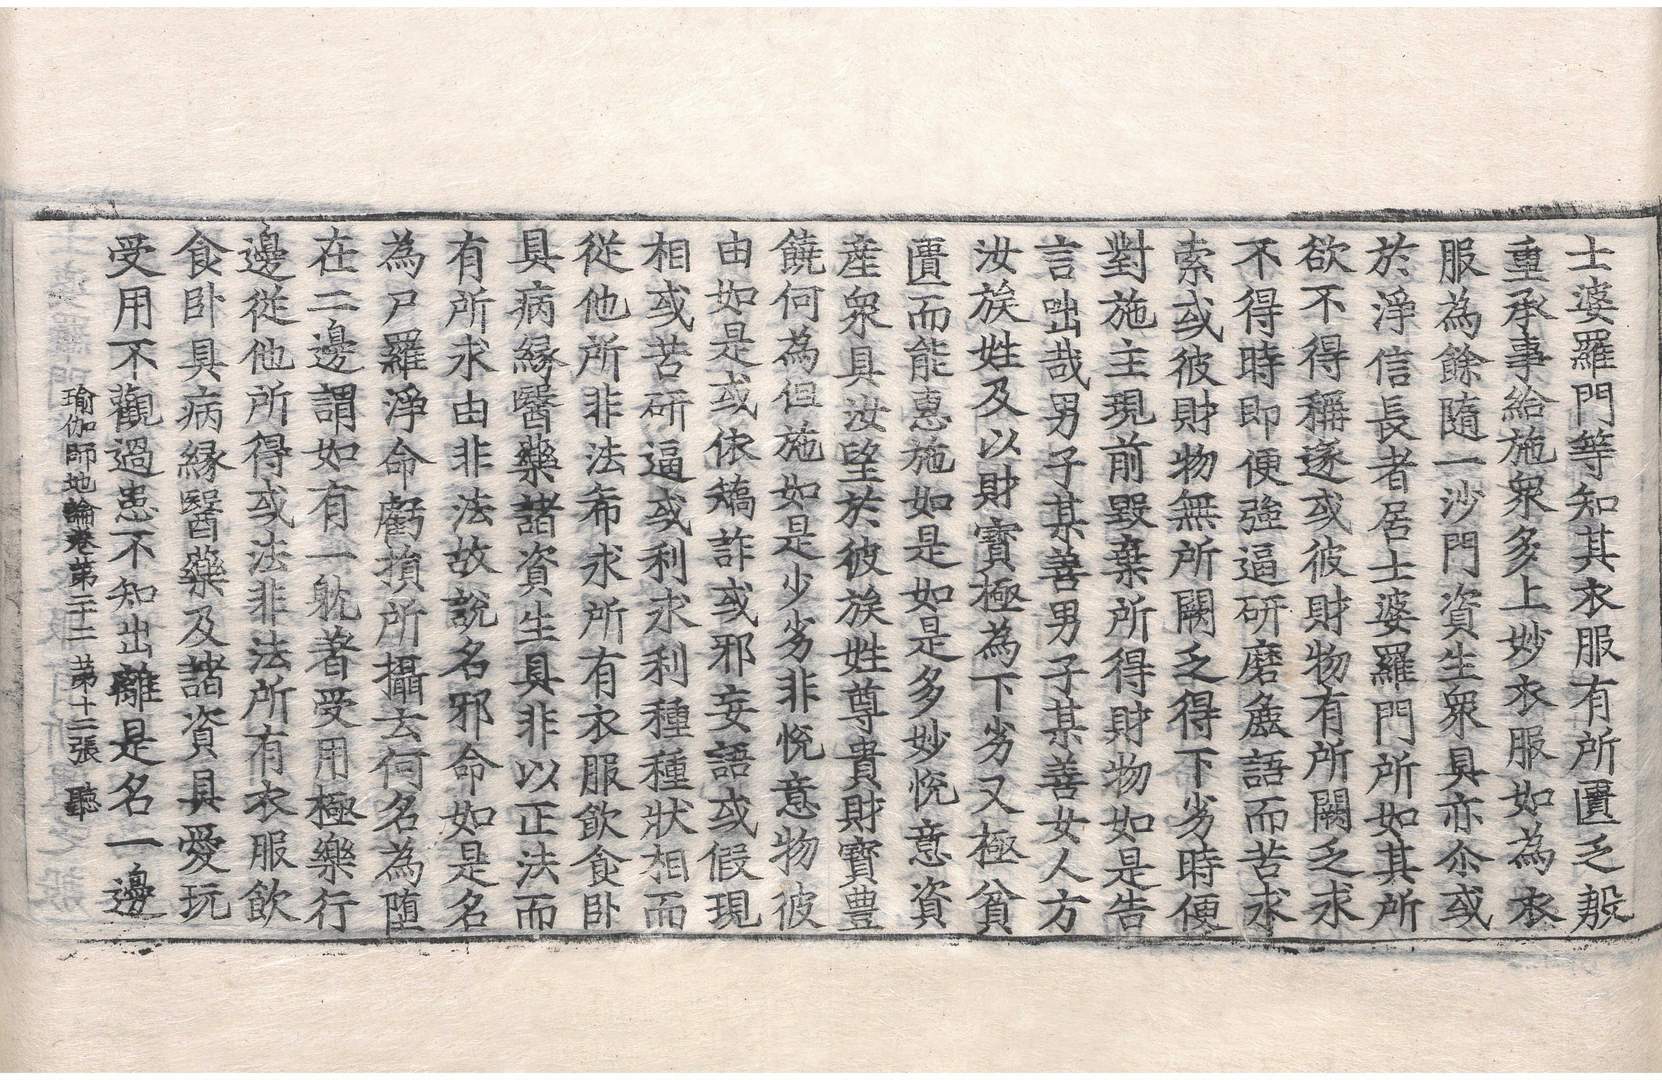 士婆羅門等知其衣服有所匱乏殷
重承事給施眾多上妙衣服如為衣
服為餘隨一沙門資生眾具亦尒或
於淨信長者居士婆羅門所如其所
欲不得稱遂或彼財物有所闕乏求
不得時即便強逼研磨麁語而苦求
索或彼財物無所闕乏得下劣時便
對施主現前毀棄所得財物如是告
言咄哉男子某善男子某善女人方
汝族姓及以財寶極為下劣又極貧
匱而能惠施如是如是多妙悅意資
產眾具汝望於彼族姓尊貴財寶豊
饒何為但施如是少劣非悅意物彼
由如是或依矯詐或邪妄語或假現
相或苦研逼或利求利種種狀相而
從他所非法希求所有衣服飲食卧
具病緣醫藥諸資生具非以正法而
有所求由非法故說名邪命如是名
為尸羅淨命虧損所攝去何名為隨
在二邊謂如有一躭著受用極樂行
邊從他所得或法非法所有衣服飲
食卧具病緣醫藥及諸資具愛玩
受用不觀過患不知出離是名一邊
瑜伽師地論卷第二十二 第十二張 聽